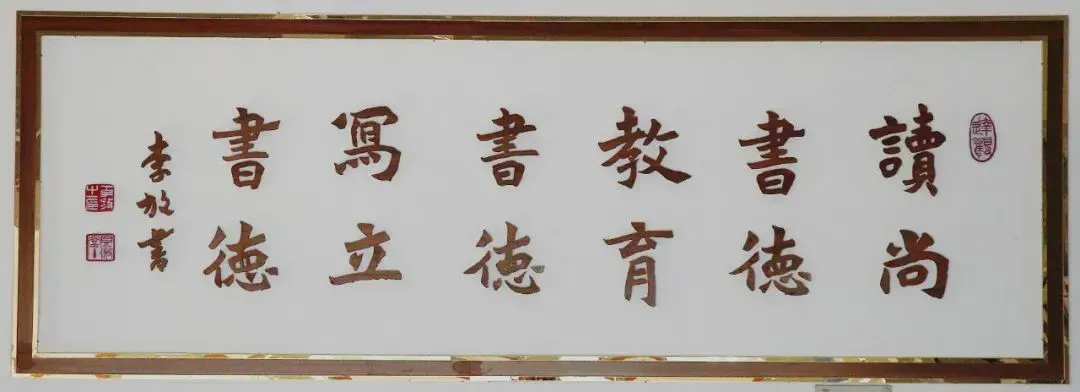 讀書教書寫書
尚德育德立德
李放書